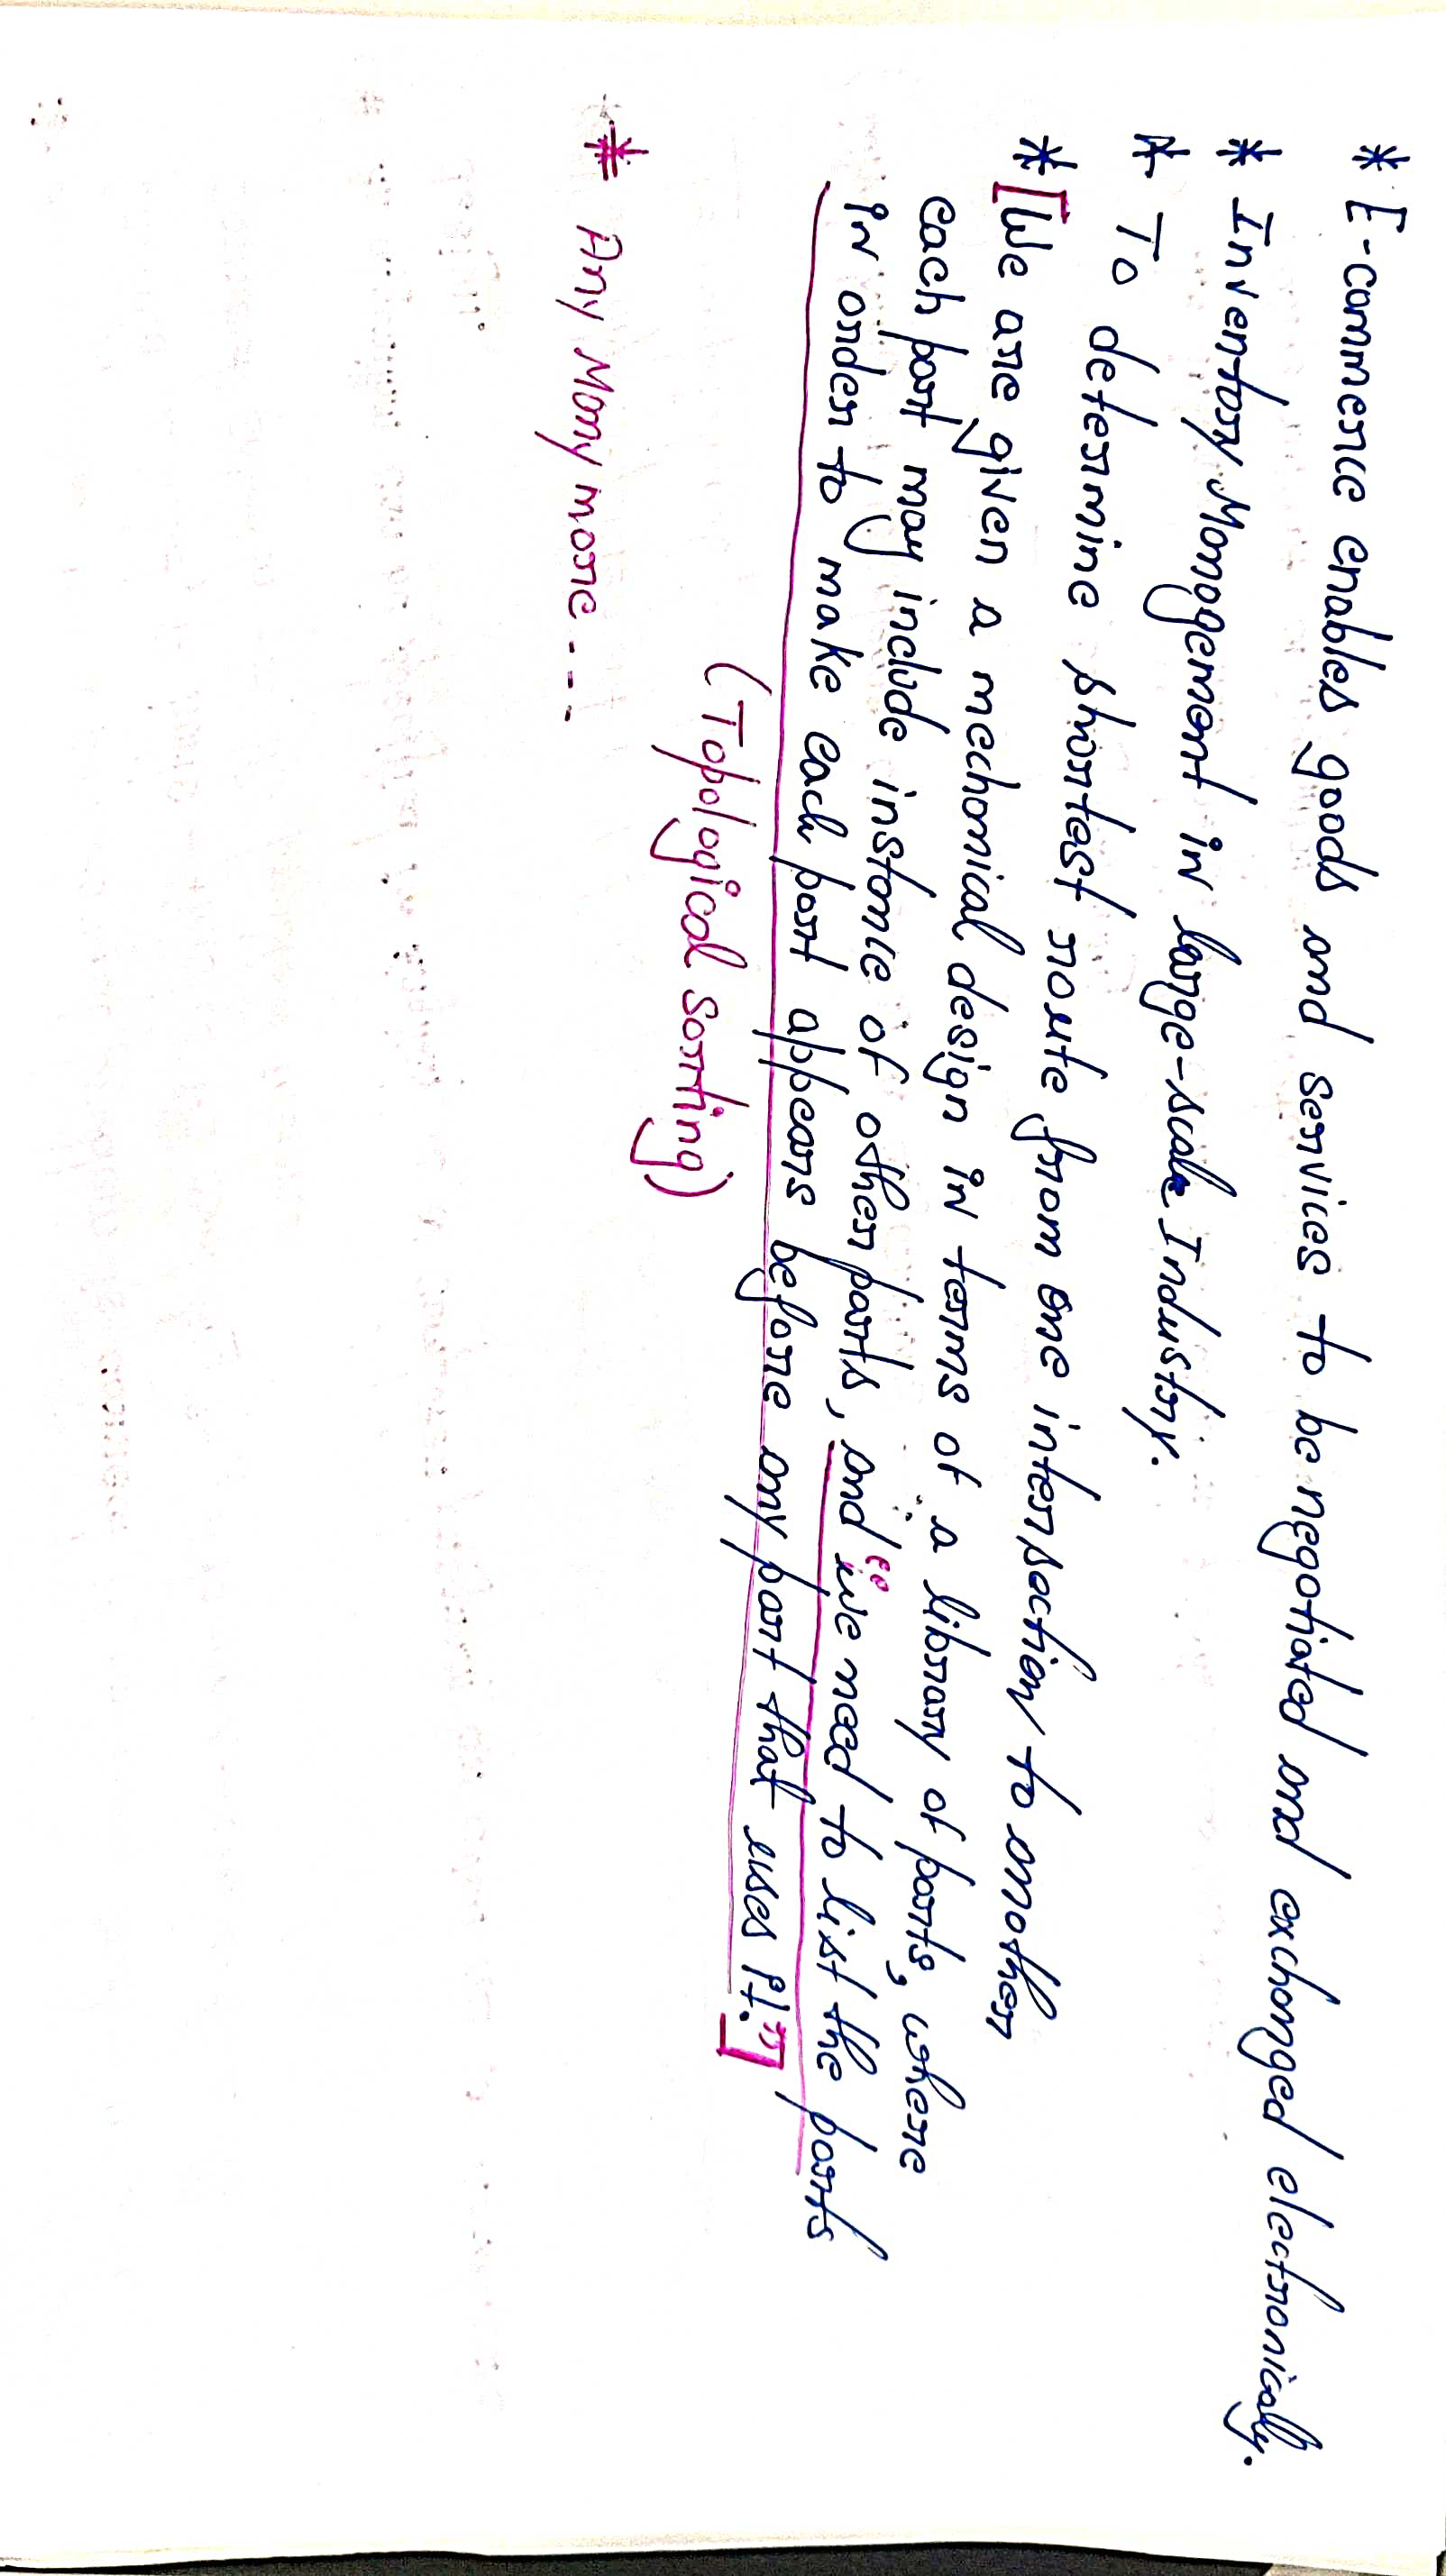 * E-commerce enables goods and services to be negotiated and exchanged electronically.
* Inventory Management in large-scale Industry.
* To determine shortest route from one intersection to another
* [We are given a mechanical design in terms of a library of parts, where
each part may include instance of other parts, and "we need to list the parts
in order to make each part appears before any part that uses it."]
(Topological sorting)
* Any Many more ---